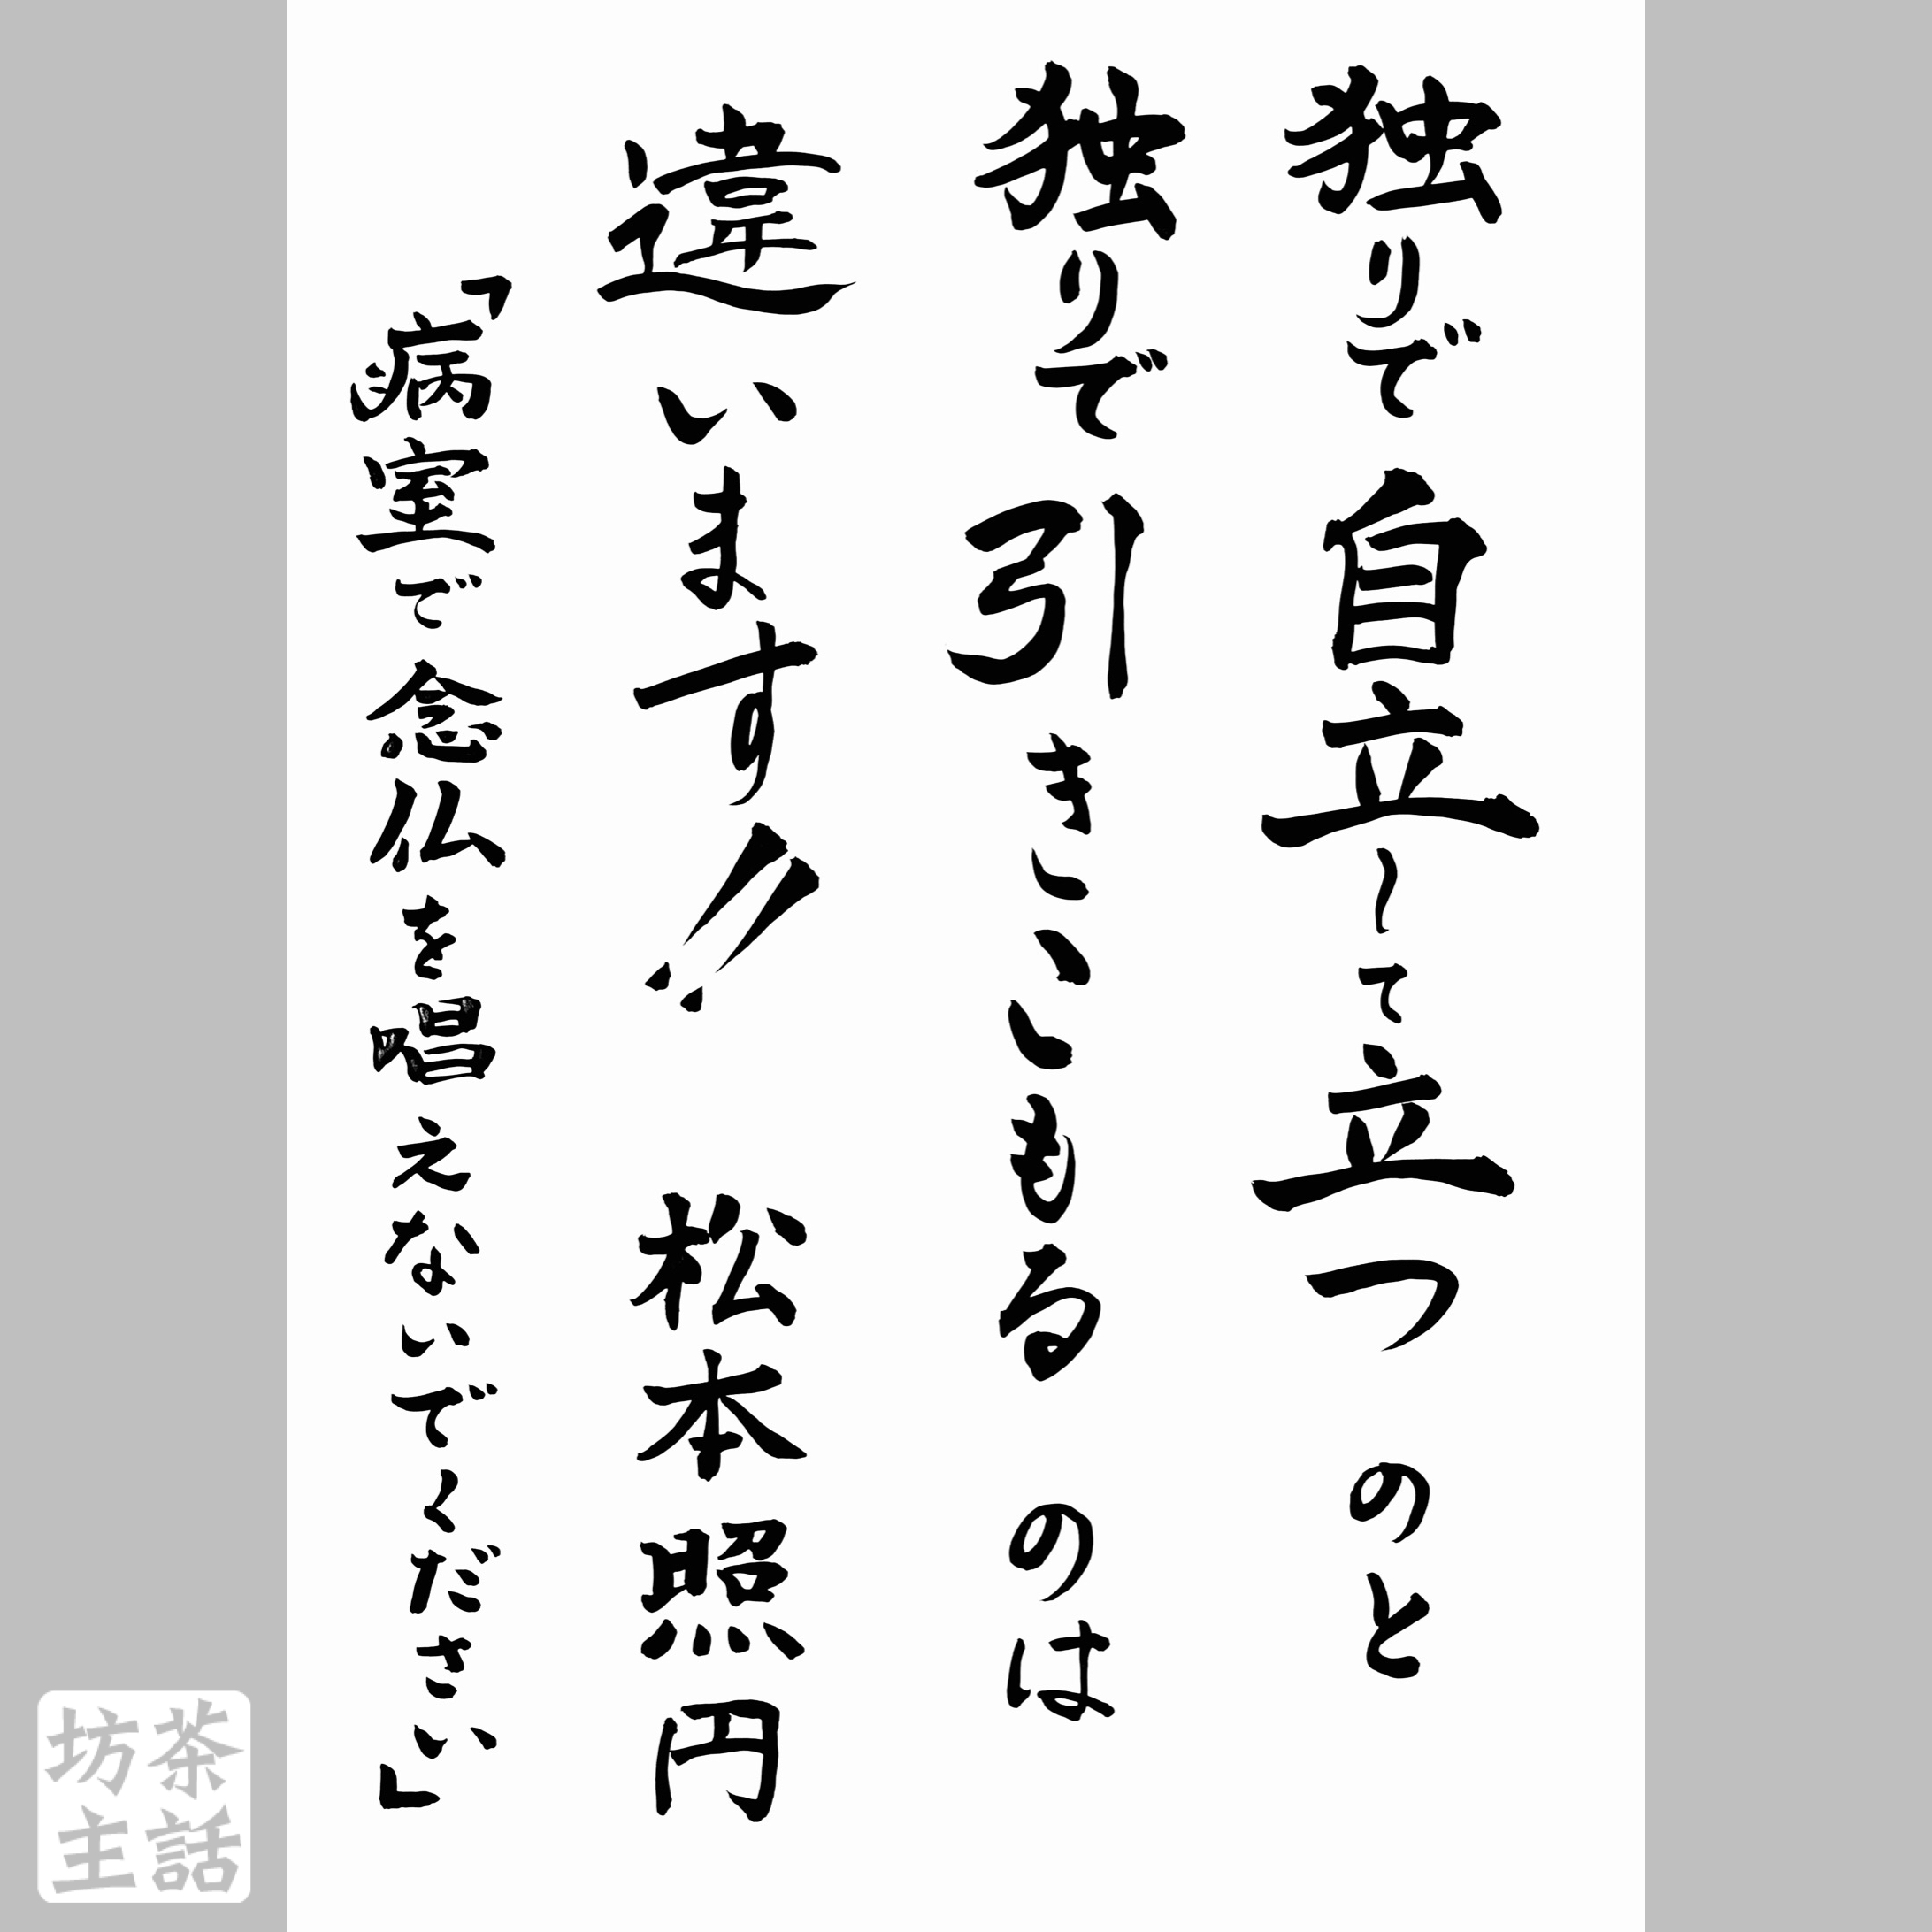 独りで自立して立つのと
独りで引きこいもるのは
違います〃。 松本照円
「病室で念仏を唱えないでください」
茶話
坊主